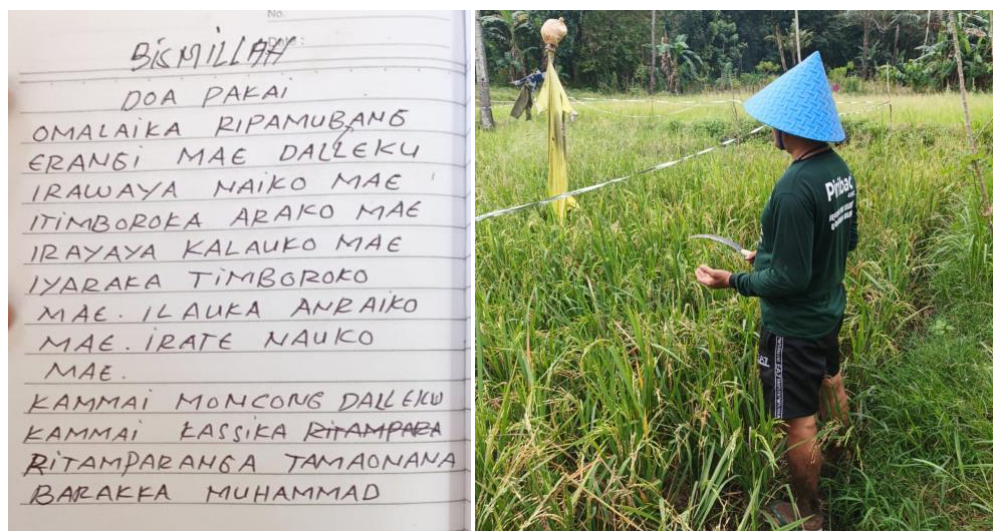 No.
BISMILLAH
DOA PAKAI
OMALAIKA RIPAMUBANG
ERANGI MAE DALLEKU
IRAWAYA NAIKO MAE
ITIMBOROKA ARAKO MAE
IRAYAYA KALAUKO MAE
IYARAKA TIMBOROKO
MAE. ILAUKA ANRAIKO
MAE. IRATE NAUKO
MAE.
KAMMAI MONCONG DALLEKU
KAMMAI KASSIKA RITAMPARA
RITAMPARANGA TAMAONANA
BARAKKA MUHAMMAD